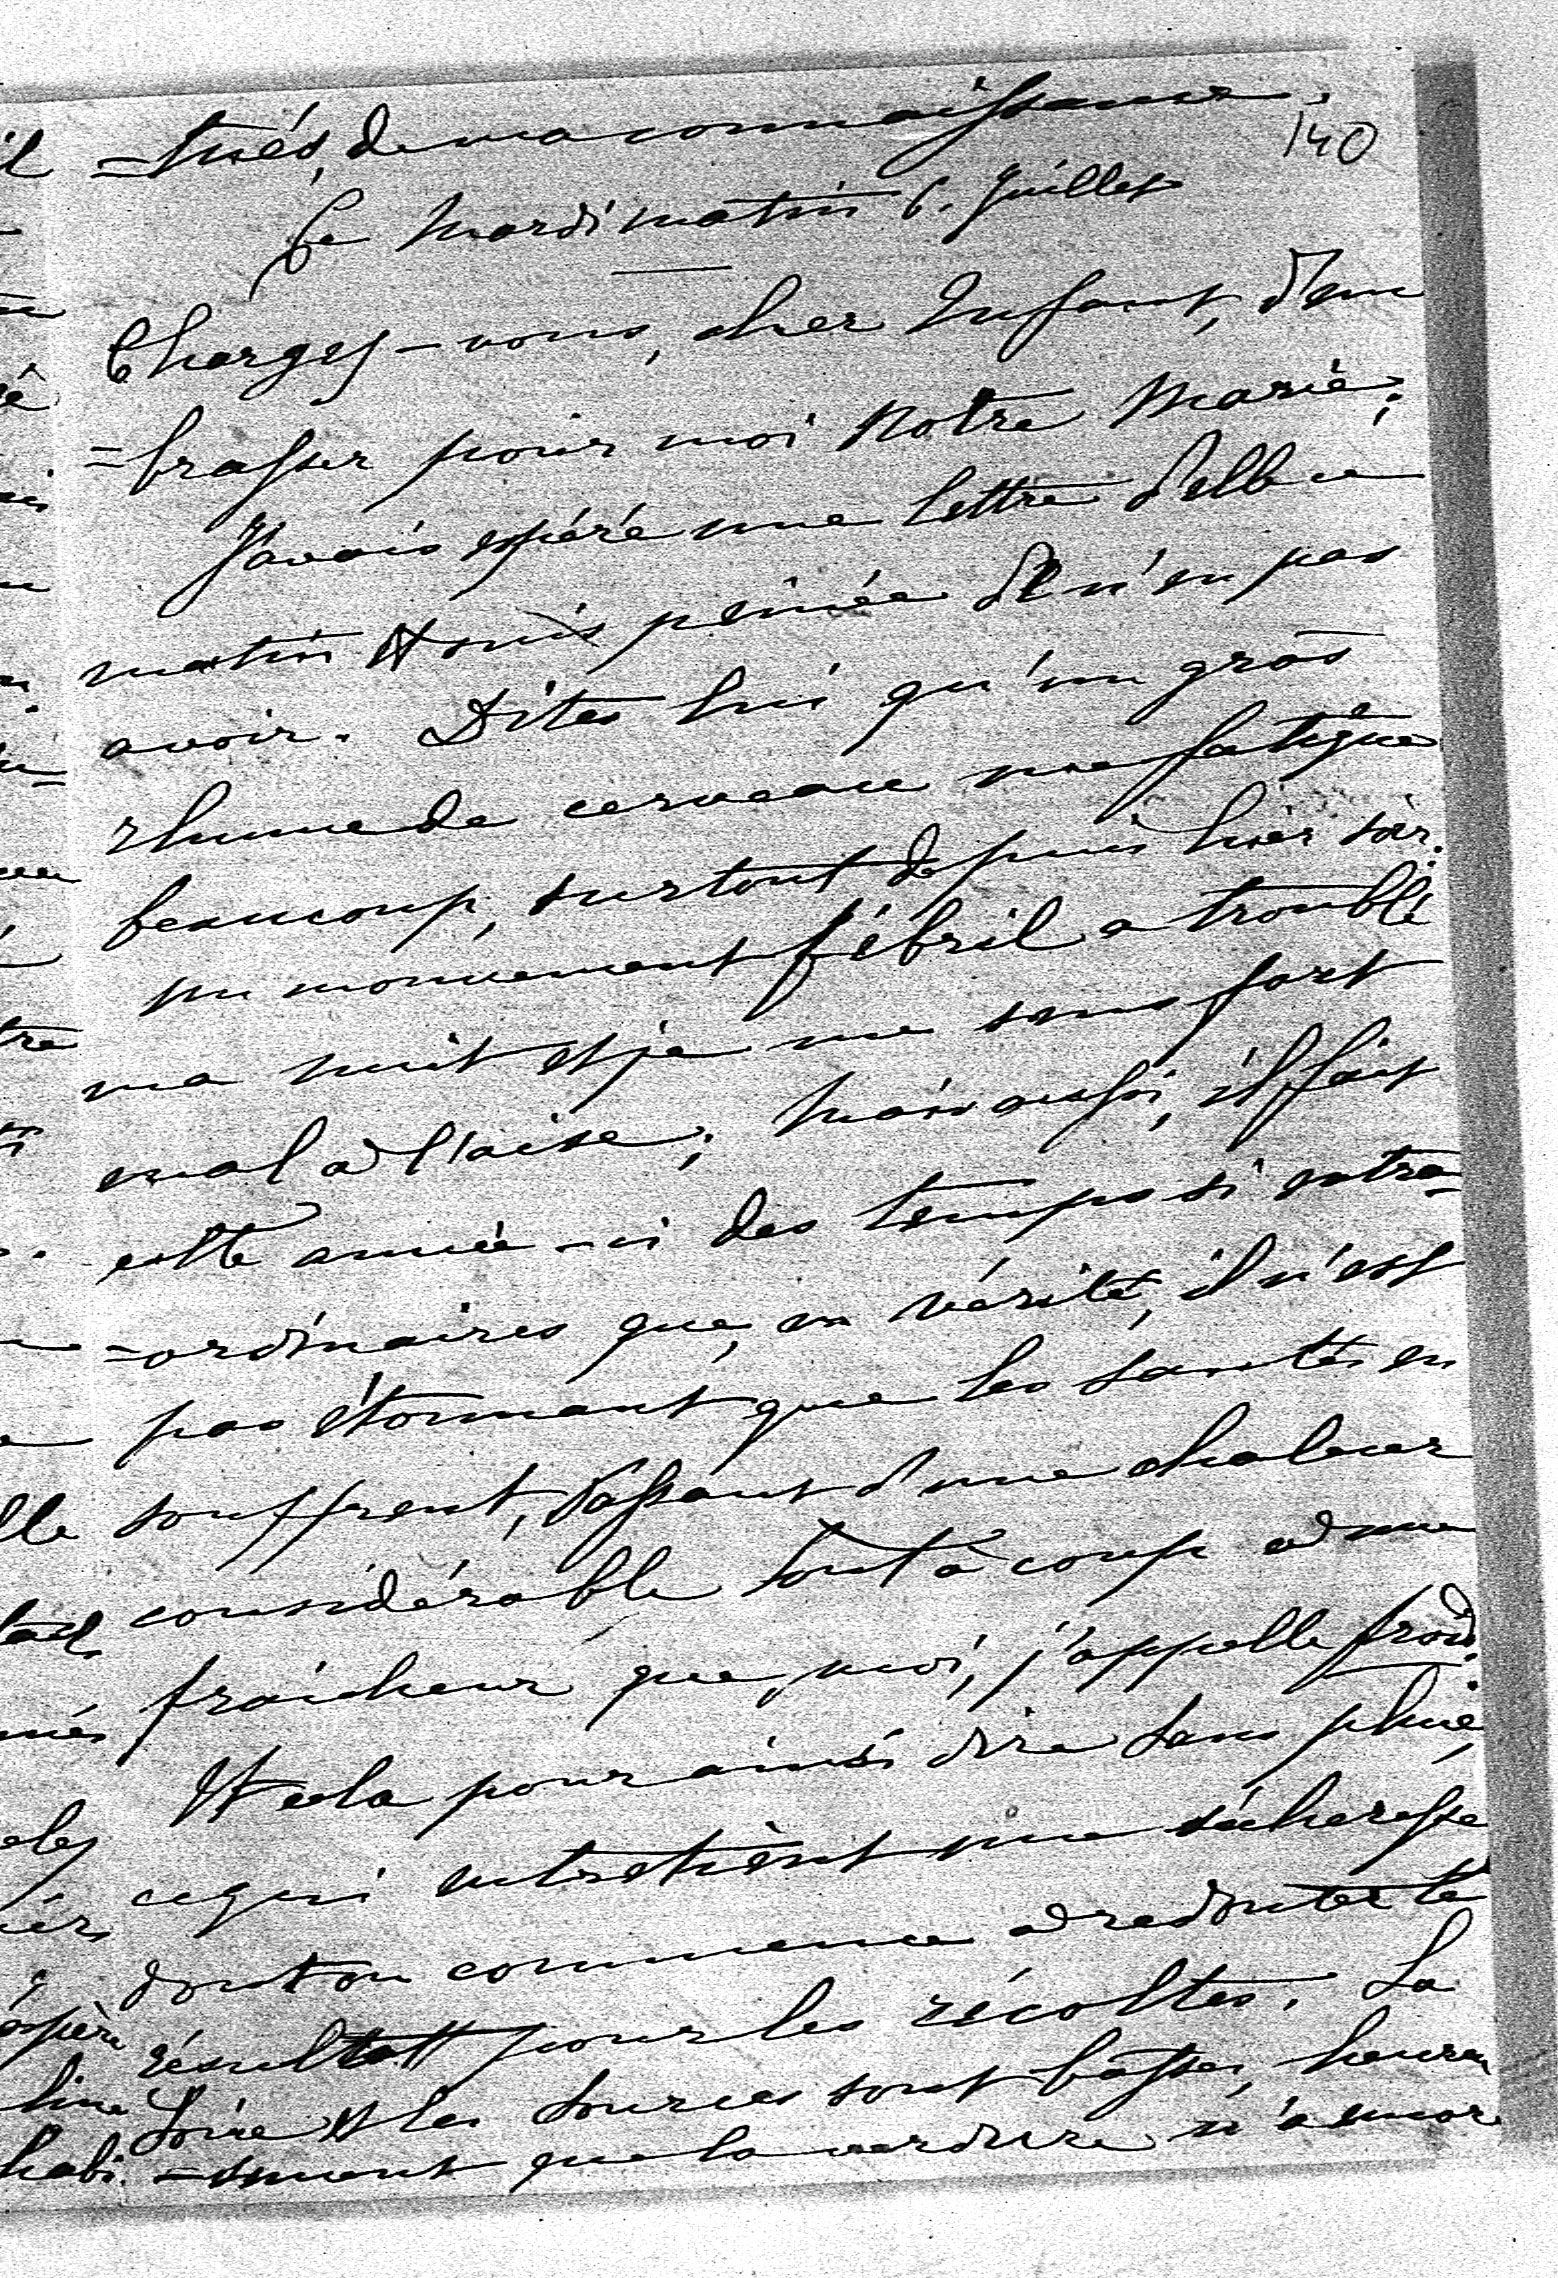 140
=tués, de ma connaissance.
Ce Mardi matin 6. Juillet
Chargez-vous, cher Enfant, d'em
=brasser pour moi notre Marie;
J'avais espéré une lettre d'elle ce
matin et suis peinée de n'en pas
avoir. Dites lui qu'un gros
rhume de cerveau me fatigue
beaucoup, surtout depuis hier soir.
un mouvement fébril a troublé
ma nuit et je me sens fort
mal à l'aise; mais aussi, il fait
cette année-ci des temps si extra-
=ordinaires que, en vérité, il n'est
pas étonnant que les santés en
souffrent, Passant d'une chaleur
considérable tout à coup à une
fraîcheur que, moi, j'appelle froid.
Et cela pour ainsi dire sans pluie,
ce qui entretient une sécheresse
dont on commence à redouter le
résultat pour les récoltes. La
Loire et les sources sont basses, heureu
=sement que la verdure n'a encore